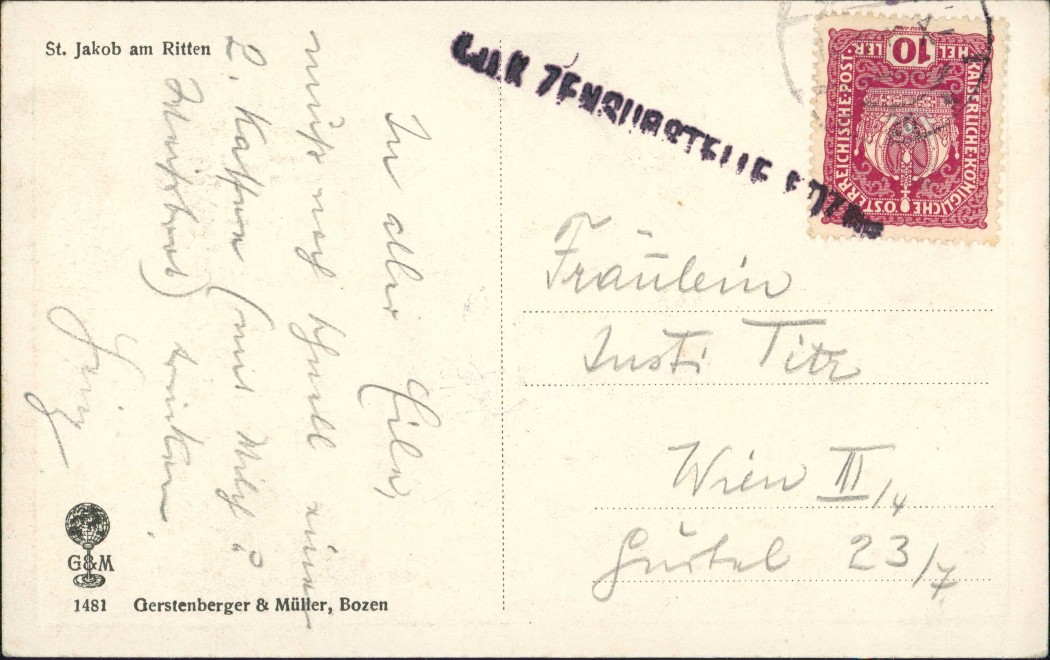 St. Jakob am Ritten
K.u.K. ZENSURSTELLE
KAISERLICHE KÖNIGLICHE ÖSTERREICHISCHE POST
10
HELLER
In aller Eile,
muß noch schnell eine
2. Kaffee (mit Milch?
trinken.
Fräulein
Justi Titz
Wien III/4
Gürtel 23/7
G&M
1481 Gerstenberger & Müller, Bozen